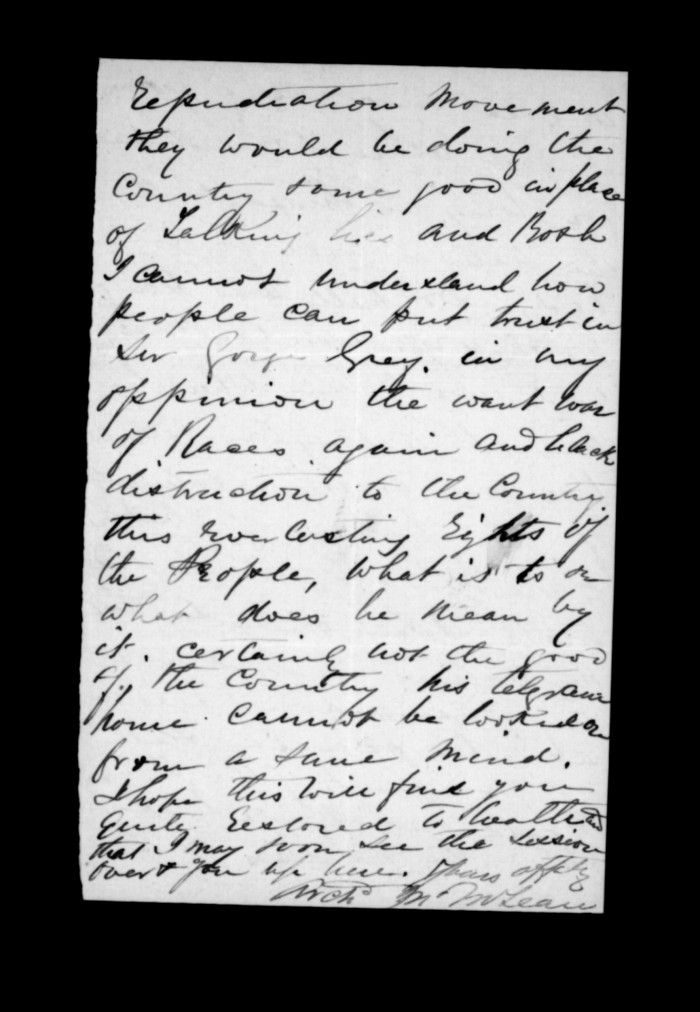 Repudiation Movement
they would be doing the
Country some good in place
of Talking lies and Bosh
I cannot understand how
people can put trust in
Sir Gorge Grey. in my
oppinion the want war
of Races again and
distruction to the Country
this Ever Lasting Rights of
the People, What is to
what does he mean by
it. certainly not the good
of the Country his telgram
home cannot be looked on
from a sane mind.
I hope this will find you
quite Restored to health and
that I may soon see the session
over & you up here. Yours afftly
Archd McLean